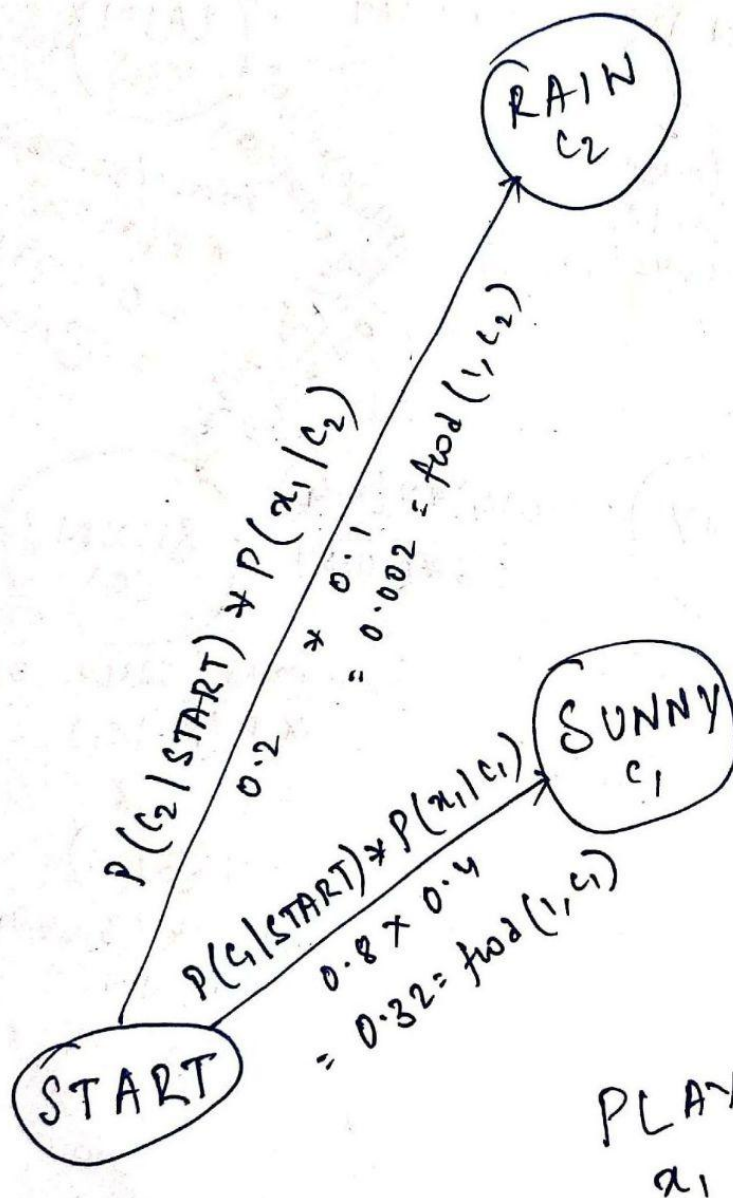 RAIN
C2
P(C2|START) * P(x1|C2)
0.2 * 0.1
= 0.002 = fwd(1, C2)
SUNNY
C1
P(C1|START) * P(x1|C1)
0.8 × 0.4
= 0.32 = fwd(1, C1)
START
PLAY
x1